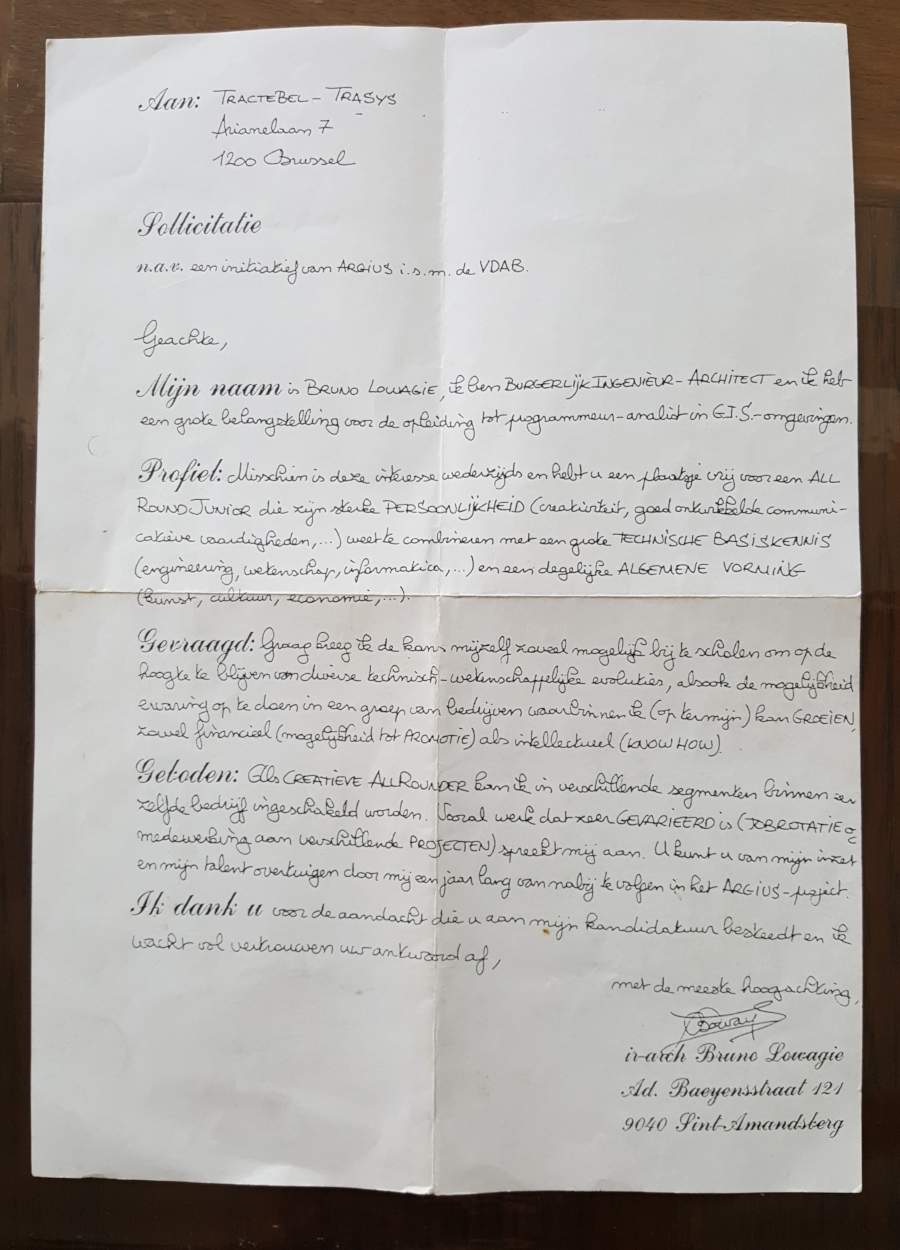 Aan: TRACTEBEL - TRASYS
Arianelaan 7
1200 Brussel
Sollicitatie
n.a.v. een initiatief van ARGIUS i.s.m. de VDAB.
Geachte,
Mijn naam is BRUNO LOWAGIE, ik ben BURGERLIJK INGENIEUR-ARCHITECT en ik heb
een grote belangstelling voor de opleiding tot programmeur-analist in G.I.S.-omgevingen.
Profiel: Misschien is deze interesse wederzijds en hebt u een plaatsje vrij voor een ALL
ROUND JUNIOR die zijn sterke PERSOONLIJKHEID (creativiteit, goed ontwikkelde communi-
catieve vaardigheden,...) weet te combineren met een grote TECHNISCHE BASISKENNIS
(engineering, wetenschap, informatica,...) en een degelijke ALGEMENE VORMING
(kunst, cultuur, economie,...).
Gevraagd: Graag kreeg ik de kans mijzelf zoveel mogelijk bij te scholen om op de
hoogte te blijven van diverse technisch-wetenschappelijke evoluties, alsook de mogelijkheid
ervaring op te doen in een groep van bedrijven waarbinnen ik (op termijn) kan GROEIEN,
zowel financieel (mogelijkheid tot PROMOTIE) als intellectueel (KNOW HOW).
Geboden: Als CREATIEVE ALLROUNDER kan ik in verschillende segmenten binnen een
zelfde bedrijf ingeschakeld worden. Vooral werk dat zeer GEVARIEERD is (JOBROTATIE of
medewerking aan verschillende PROJECTEN) spreekt mij aan. U kunt u van mijn inzet
en mijn talent overtuigen door mij een jaar lang van nabij te volgen in het ARGIUS-project.
Ik dank u voor de aandacht die u aan mijn kandidatuur besteedt en ik
wacht vol vertrouwen uw antwoord af,
met de meeste hoogachting,
ir-arch Bruno Lowagie
Ad. Baeyensstraat 121
9040 Sint-Amandsberg